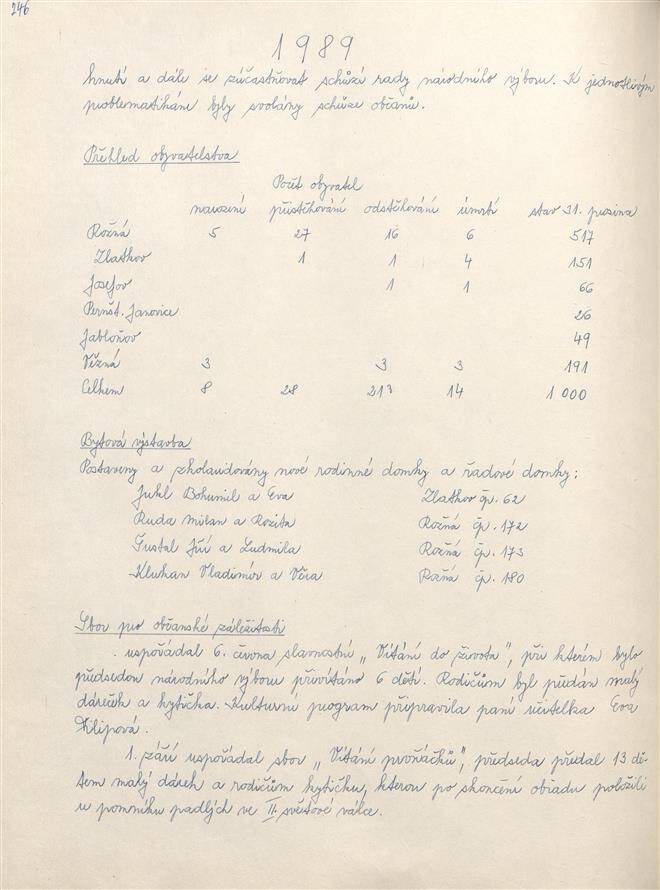 246
1989
hnutí a dále se zúčastňovat schůzí rady národního výboru. K jednotlivým
problematikám byly svolány schůze občanů.
Přehled obyvatelstva
Počet obyvatel
narození přistěhování odstěhování úmrtí stav 31. prosince
Rožná 5 27 16 6 517
Zlatkov 1 1 4 151
Josefov 1 1 66
Pernšt. Janovice 26
Jabloňov 49
Věžná 3 3 3 191
Celkem 8 28 213 14 1 000
Bytová výstavba
Postaveny a zkolaudovány nové rodinné domky a řadové domky:
Jukl Bohumil a Eva Zlatkov čp. 62
Ruda Milan a Rozita Rožná čp. 172
Šustal Jiří a Ludmila Rožná čp. 173
Klukan Vladimír a Věra Rožná čp. 180
Sbor pro občanské záležitosti
uspořádal 6. června slavnostní „Vítání do života", při kterém bylo
předsedou národního výboru přivítáno 6 dětí. Rodičům byl předán malý
dáreček a kytička. Kulturní program připravila paní učitelka Eva
Filipová.
1. září uspořádal sbor „Vítání prvňáčků", předseda předal 13 dě-
tem malý dárek a rodičům kytičku, kterou po skončení obřadu položili
u pomníku padlých ve II. světové válce.